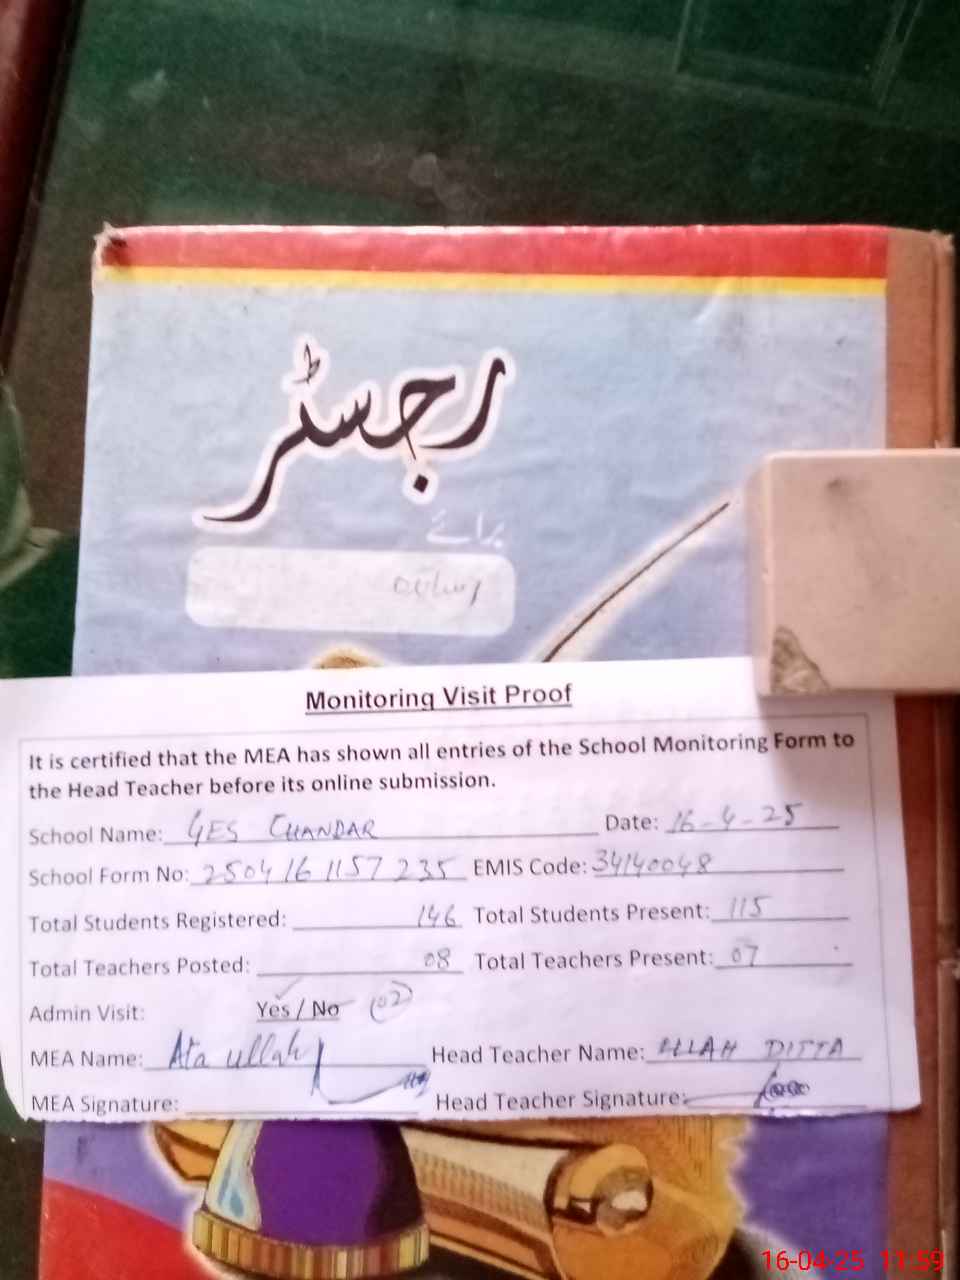 رجسٹر
برائے
Monitoring Visit Proof
It is certified that the MEA has shown all entries of the School Monitoring Form to
the Head Teacher before its online submission.
School Name: GES CHANDAR Date: 16-4-25
School Form No: 2504161157235 EMIS Code: 34140048
Total Students Registered: 146 Total Students Present: 115
Total Teachers Posted: 08 Total Teachers Present: 07
Admin Visit: Yes / No (02)
MEA Name: Ata ullah Head Teacher Name: ALLAH DITTA
MEA Signature: Head Teacher Signature:
16-04-25 11:59